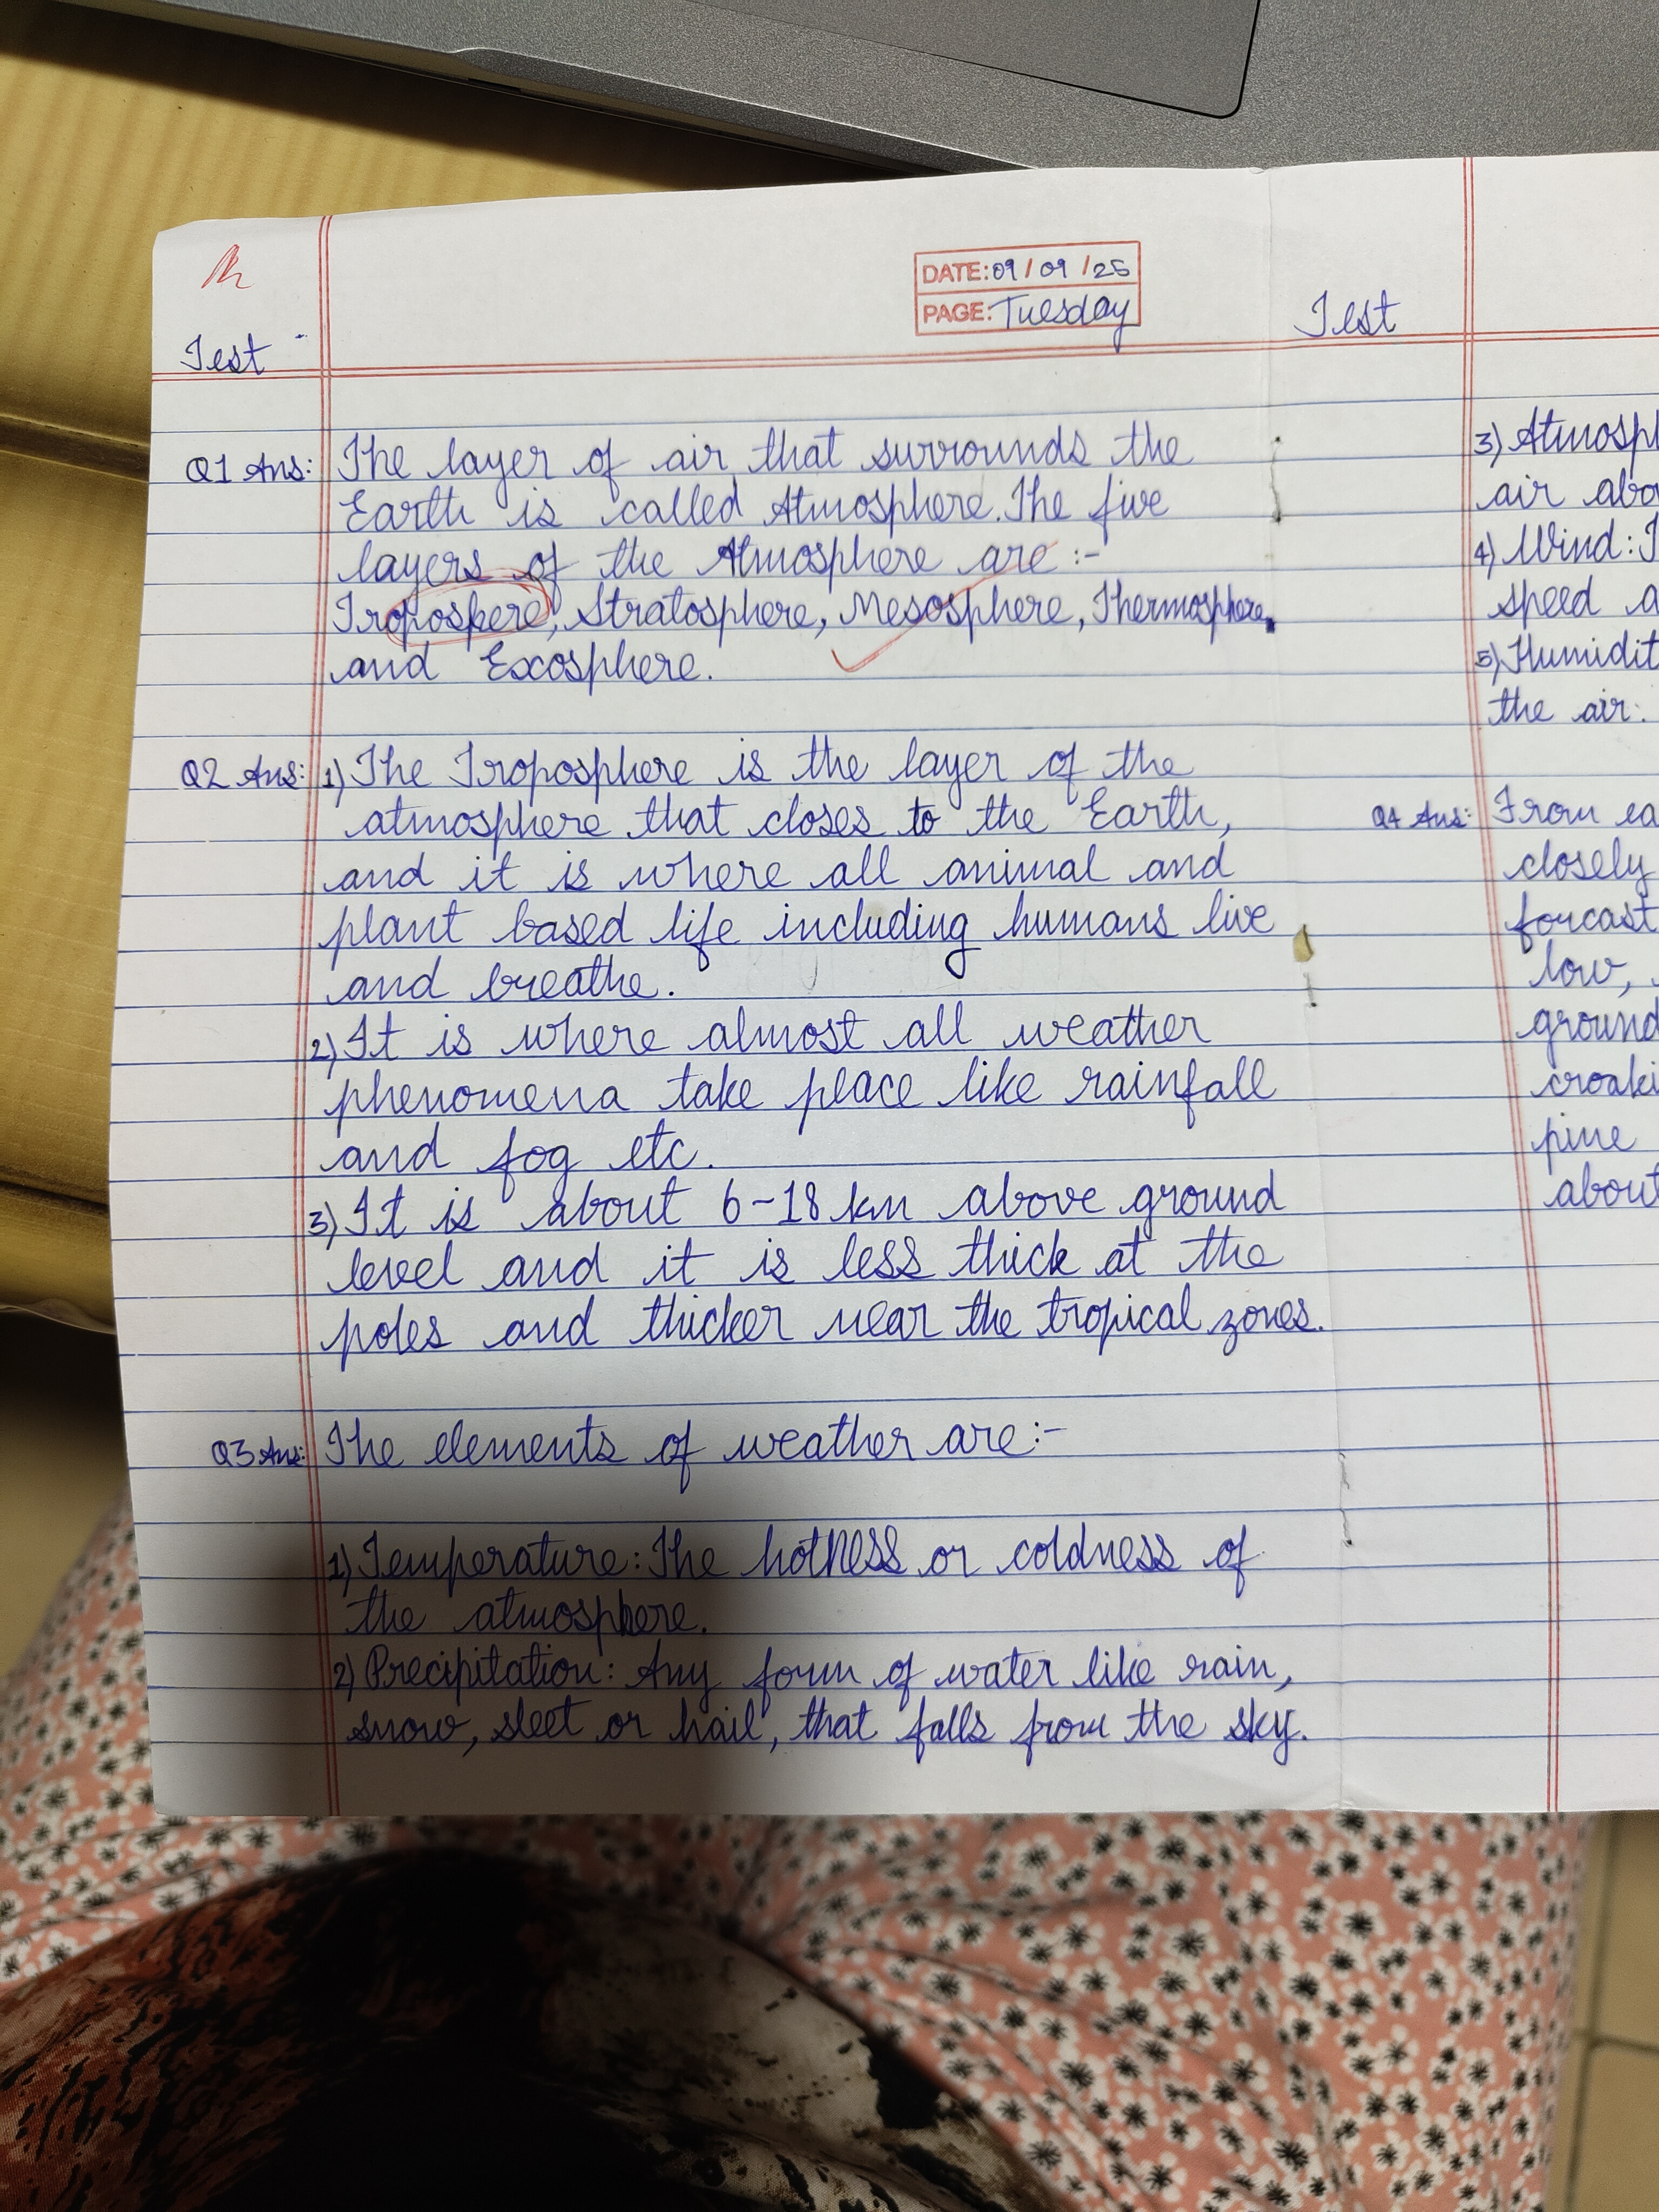 DATE: 09/09/25
PAGE: Tuesday
Test
Q1 Ans: The layer of air that surrounds the
Earth is called Atmosphere. The five
layers of the Atmosphere are :-
Troposkere, Stratosphere, Mesosphere, Thermosphere,
and Exosphere.
Q2 Ans: 1) The Troposphere is the layer of the
atmosphere that closes to the Earth,
and it is where all animal and
plant based life including humans live
and breathe.
2) It is where almost all weather
phenomena take place like rainfall
and fog etc.
3) It is about 6-18 km above ground
level and it is less thick at the
poles and thicker near the tropical zones.
Q3 Ans: The elements of weather are:-
1) Temperature: The hotness or coldness of
the atmosphere.
2) Precipitation: Any form of water like rain,
snow, sleet or hail, that falls from the sky.
Test
3) Atmosph
air abo
4) Wind: T
speed a
5) Humidit
the air.
Q4 Ans: From ea
closely
forcast
low,
ground
croaki
pine
about